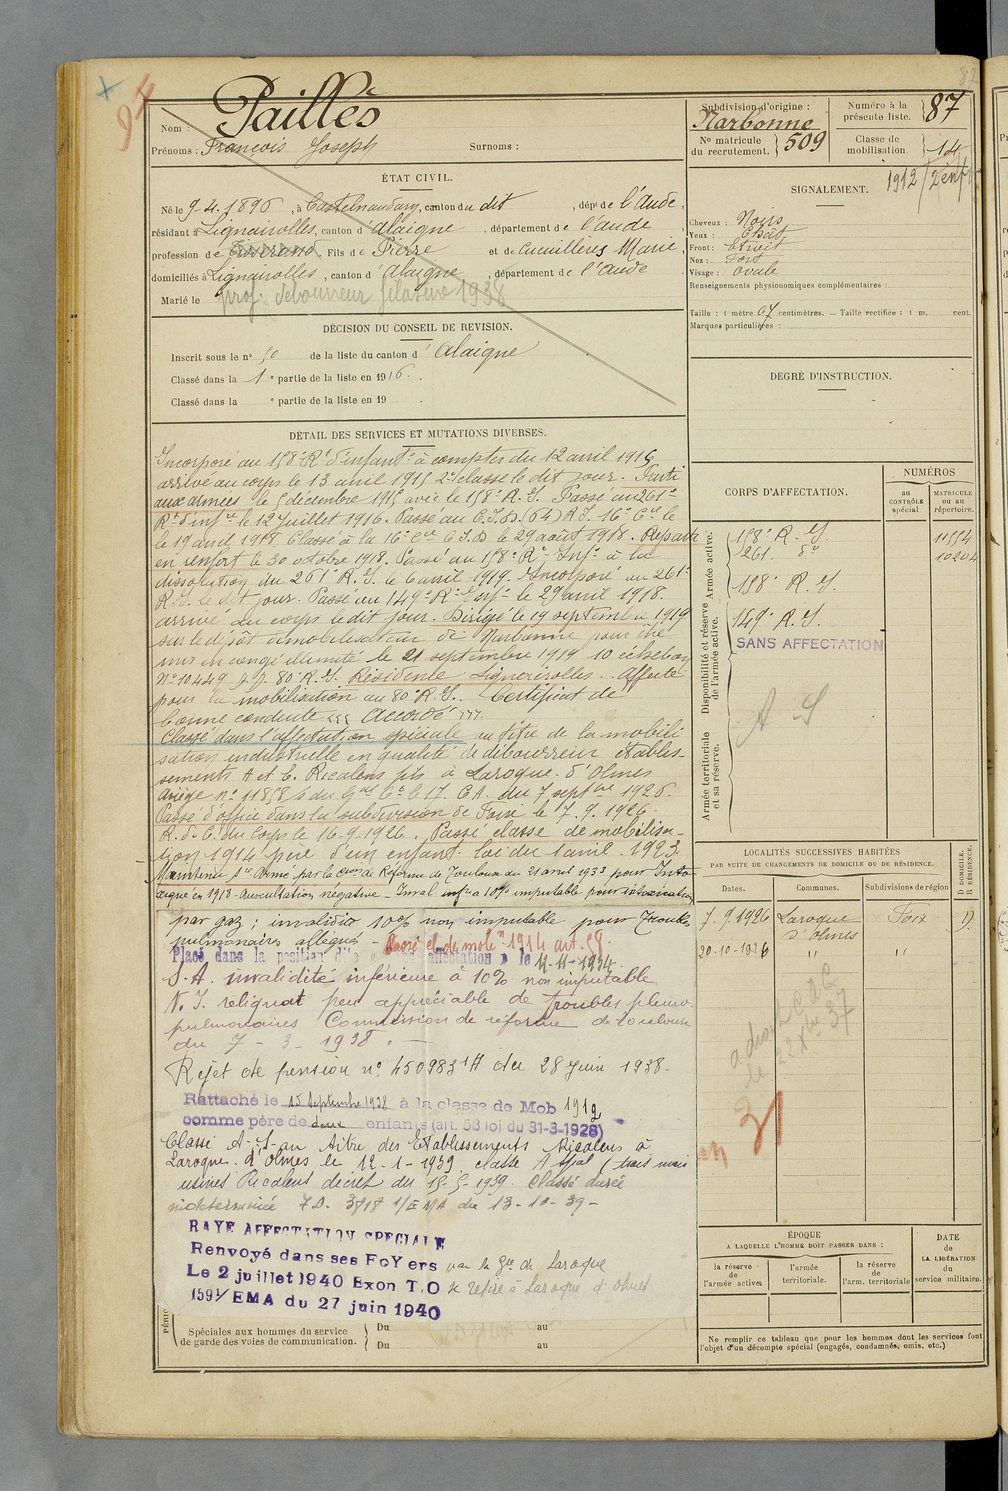 87
Nom : Paillès
Prénoms : François Joseph Surnoms :
ÉTAT CIVIL.
Né le 9-4-1896, à Castelnaudary, canton du dit, dépt de l'Aude,
résidant à Lignairolles, canton d'Alaigne, département de l'Aude
profession de Tisserand Fils de Pierre et de Cucuilleres Marie,
domiciliés à Lignairolles, canton d'Alaigne, département de l'Aude
Marié le
prof. débourreur filature 1938
DÉCISION DU CONSEIL DE REVISION.
Inscrit sous le n° 50 de la liste du canton d'Alaigne
Classé dans la 1e partie de la liste en 1916.
Classé dans la e partie de la liste en 19
Subdivision d'origine : Narbonne
N° matricule du recrutement. 509
Numéro à la présente liste. 87
Classe de mobilisation. 14
1912 / 2 enfts
SIGNALEMENT.
Cheveux : Noirs
Yeux : Chât
Front : Etroit
Nez : Fort
Visage : Ovale
Renseignements physionomiques complémentaires :
Taille : 1 mètre 67 centimètres. — Taille rectifiée : 1 m. cent.
Marques particulières :
DEGRÉ D'INSTRUCTION.
DÉTAIL DES SERVICES ET MUTATIONS DIVERSES.
Incorporé au 158e Rt d'infante à compter du 12 avril 1915
arrivé au corps le 13 avril 1915 2e classe le dit jour. Parti
aux armées le 5 décembre 1915 avec le 158e R.I. Passé au 261e
Rt d'infie le 12 Juillet 1916. Passé au C.I.D. (64) R.I. 16e Cie le
le 19 avril 1918 Classé à la 16e Cie C.I.D le 29 août 1918. Reparti
en renfort le 30 octobre 1918. Passé au 158e Rt Infie à la
dissolution du 261e R.I. le 6 avril 1919. Incorporé au 261e
R.I. le dit jour. Passé au 149e Rt Infie le 29 avril 1918.
arrivé au corps le dit jour. Dirigé le 19 septembre 1919
sur le dépôt démobilisateur de Narbonne pour être
mis en congé illimité le 21 septembre 1919 10e échelon
N° 10449 80e R.I. Résidence Lignairolles. Affecté
pour la mobilisation au 80e R.I. Certificat de
bonne conduite "Accordé"
Classé dans l'affectation spéciale au titre de la mobili
sation industrielle en qualité de débourreur établis-
sements A et E. Ricalens fils à Laroque d'Olmes
Ariège n° 11858/6 du Gal Ct le 17 CA. du 7 septbre 1926.
Passé d'office dans la subdivision de Foix le 7.9.1926.
R. d. C. du Corps le 16.9.1926. Passé classe de mobilisa-
tion 1914 père d'un enfant loi du 1 avril 1923
Maintenu Sce Armé par la Cson de Réforme de Toulouse du 21 avril 1933 pour Into
xiqué en 1918. Auscultation négative - Inval infre à 10% imputable pour intoxication
par gaz ; invalidité 10% non imputable pour Troubles
pulmonaires allégués - Passé cl. de mobon 1914 art. 58
Placé dans la position dite « sans affectation » le 11-11-1934
S.A. invalidité inférieure à 10% non imputable
N.I. reliquat peu appréciable de troubles pleuro-
pulmonaires Commission de réforme de Toulouse
du 7-3-1938.
Rejet de pension n° 450983/A du 28 Juin 1938.
Rattaché le 15 Septembre 1938 à la classe de Mob 1912
comme père de deux enfants (art. 58 loi du 31-3-1928)
Classé A-S au titre des Etablissements Ricalens à
Laroque d'Olmes le 12-1-1939 classe A (trois mois
usines Ricalens décret du 15-5-1939. Classé durée
indéterminée 3818 1/E MA du 13-10-39 -
RAYE AFFECTATION SPECIALE
Renvoyé dans ses FoYers par la Gie de Laroque
Le 2 juillet 1940 Exon T.O se retire à Laroque d'Olmes
1591/EMA du 27 juin 1940
Spéciales aux hommes du service
de garde des voies de communication.
Du au
Du au
CORPS D'AFFECTATION.
NUMÉROS
au CONTRÔLE spécial.
MATRICULE ou au répertoire.
Armée active.
158e R.I. 11554
261 do 10204
158e R.I.
Disponibilité et réserve de l'armée active.
149e R.I.
SANS AFFECTATION
Armée territoriale et sa réserve.
A S
LOCALITÉS SUCCESSIVES HABITÉES
PAR SUITE DE CHANGEMENTS DE DOMICILE OU DE RÉSIDENCE.
Dates. Communes. Subdivisions de région
D. DOMICILE. R. RÉSIDENCE.
7-9-1926 Laroque d'Olmes Foix D.
20-10-1926 " "
31
ÉPOQUE
A LAQUELLE L'HOMME DOIT PASSER DANS :
la réserve de l'armée active
l'armée territoriale.
la réserve de l'arm. territoriale
DATE de LA LIBÉRATION du service militaire.
Ne remplir ce tableau que pour les hommes dont les services font
l'objet d'un décompte spécial (engagés, condamnés, omis, etc.)